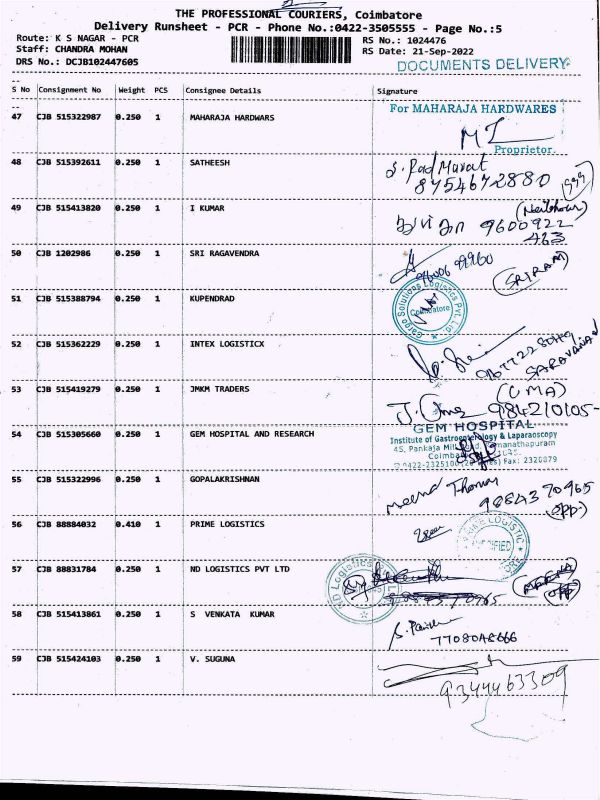 THE PROFESSIONAL COURIERS, Coimbatore
Delivery Runsheet - PCR - Phone No.:0422-3505555 - Page No.:5
Route: K S NAGAR - PCR RS No.: 1024476
Staff: CHANDRA MOHAN RS Date: 21-Sep-2022
DRS No.: DCJB102447605 DOCUMENTS DELIVERY
S No Consignment No Weight PCS Consignee Details Signature
47 CJB 515322987 0.250 1 MAHARAJA HARDWARS For MAHARAJA HARDWARES
Proprietor.
48 CJB 515392611 0.250 1 SATHEESH
8754672880
49 CJB 515413820 0.250 1 I KUMAR
9600922
463
50 CJB 1202986 0.250 1 SRI RAGAVENDRA
(SRIRAM)
51 CJB 515388794 0.250 1 KUPENDRAD Cargo Solutions Logistics Pvt. Ltd.
Coimbatore
52 CJB 515362229 0.250 1 INTEX LOGISTICX
SARAVANAN
53 CJB 515419279 0.250 1 JMKM TRADERS (UMA)
984210105-
54 CJB 515305660 0.250 1 GEM HOSPITAL AND RESEARCH GEM HOSPITAL
Institute of Gastroenterology & Laparoscopy
45, Pankaja Mill Road, Ramanathapuram
Fax: 2320879
55 CJB 515322996 0.250 1 GOPALAKRISHNAN Meena Thomas
9884370965
(opp.)
56 CJB 88884032 0.410 1 PRIME LOGISTICS
57 CJB 88831784 0.250 1 ND LOGISTICS PVT LTD ND Logistics
58 CJB 515413861 0.250 1 S VENKATA KUMAR
7708048666
59 CJB 515424103 0.250 1 V. SUGUNA
9344463309